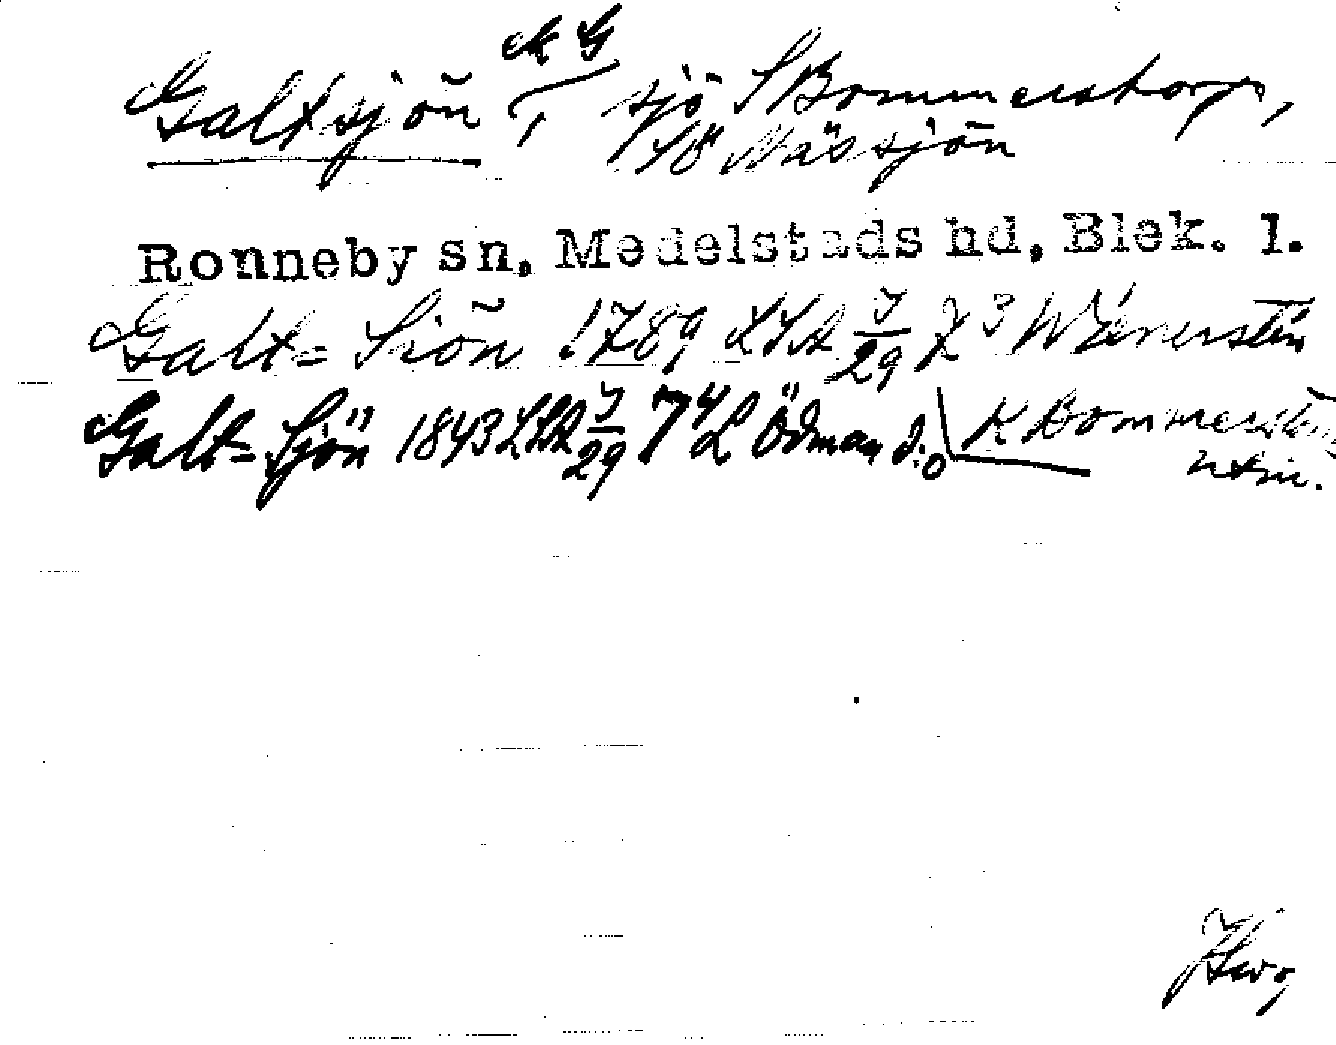 ek G
Galtsjön, sjö S Bommerstorp,
SÖ Nässjön
Ronneby sn, Medelstads hd, Blek. l.
Galt= Siön 1789 LSA J/29 Z 3 Wienerstén
Galt= Sjön 1843 LSA J/29 7 4 L Ödman d:o K Bommerstorp
utm.